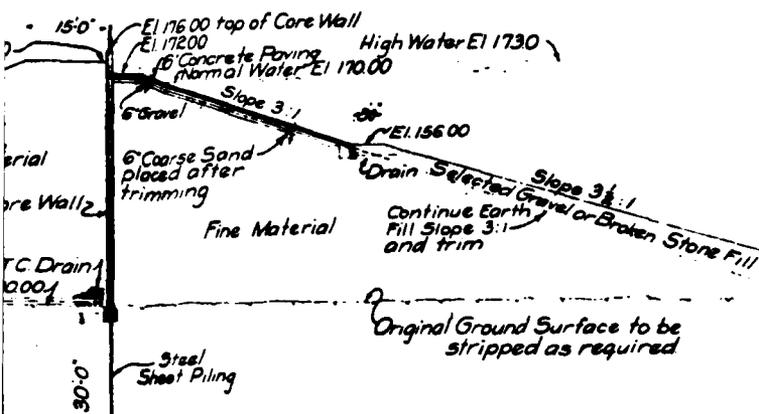 15'-0"
El. 176.00 top of Core Wall
El. 172.00
High Water El. 173.0
6" Concrete Paving
Normal Water El 170.00
Slope 3:1
6" Gravel
El. 156.00
6" Coarse Sand
placed after
trimming
Drain
Slope 3½:1
Selected Gravel or Broken Stone Fill
erial
ore Wall
Fine Material
Continue Earth
Fill Slope 3:1
and trim
T.C. Drain
0.00
Original Ground Surface to be
stripped as required
Steel
Sheet Piling
30'-0"